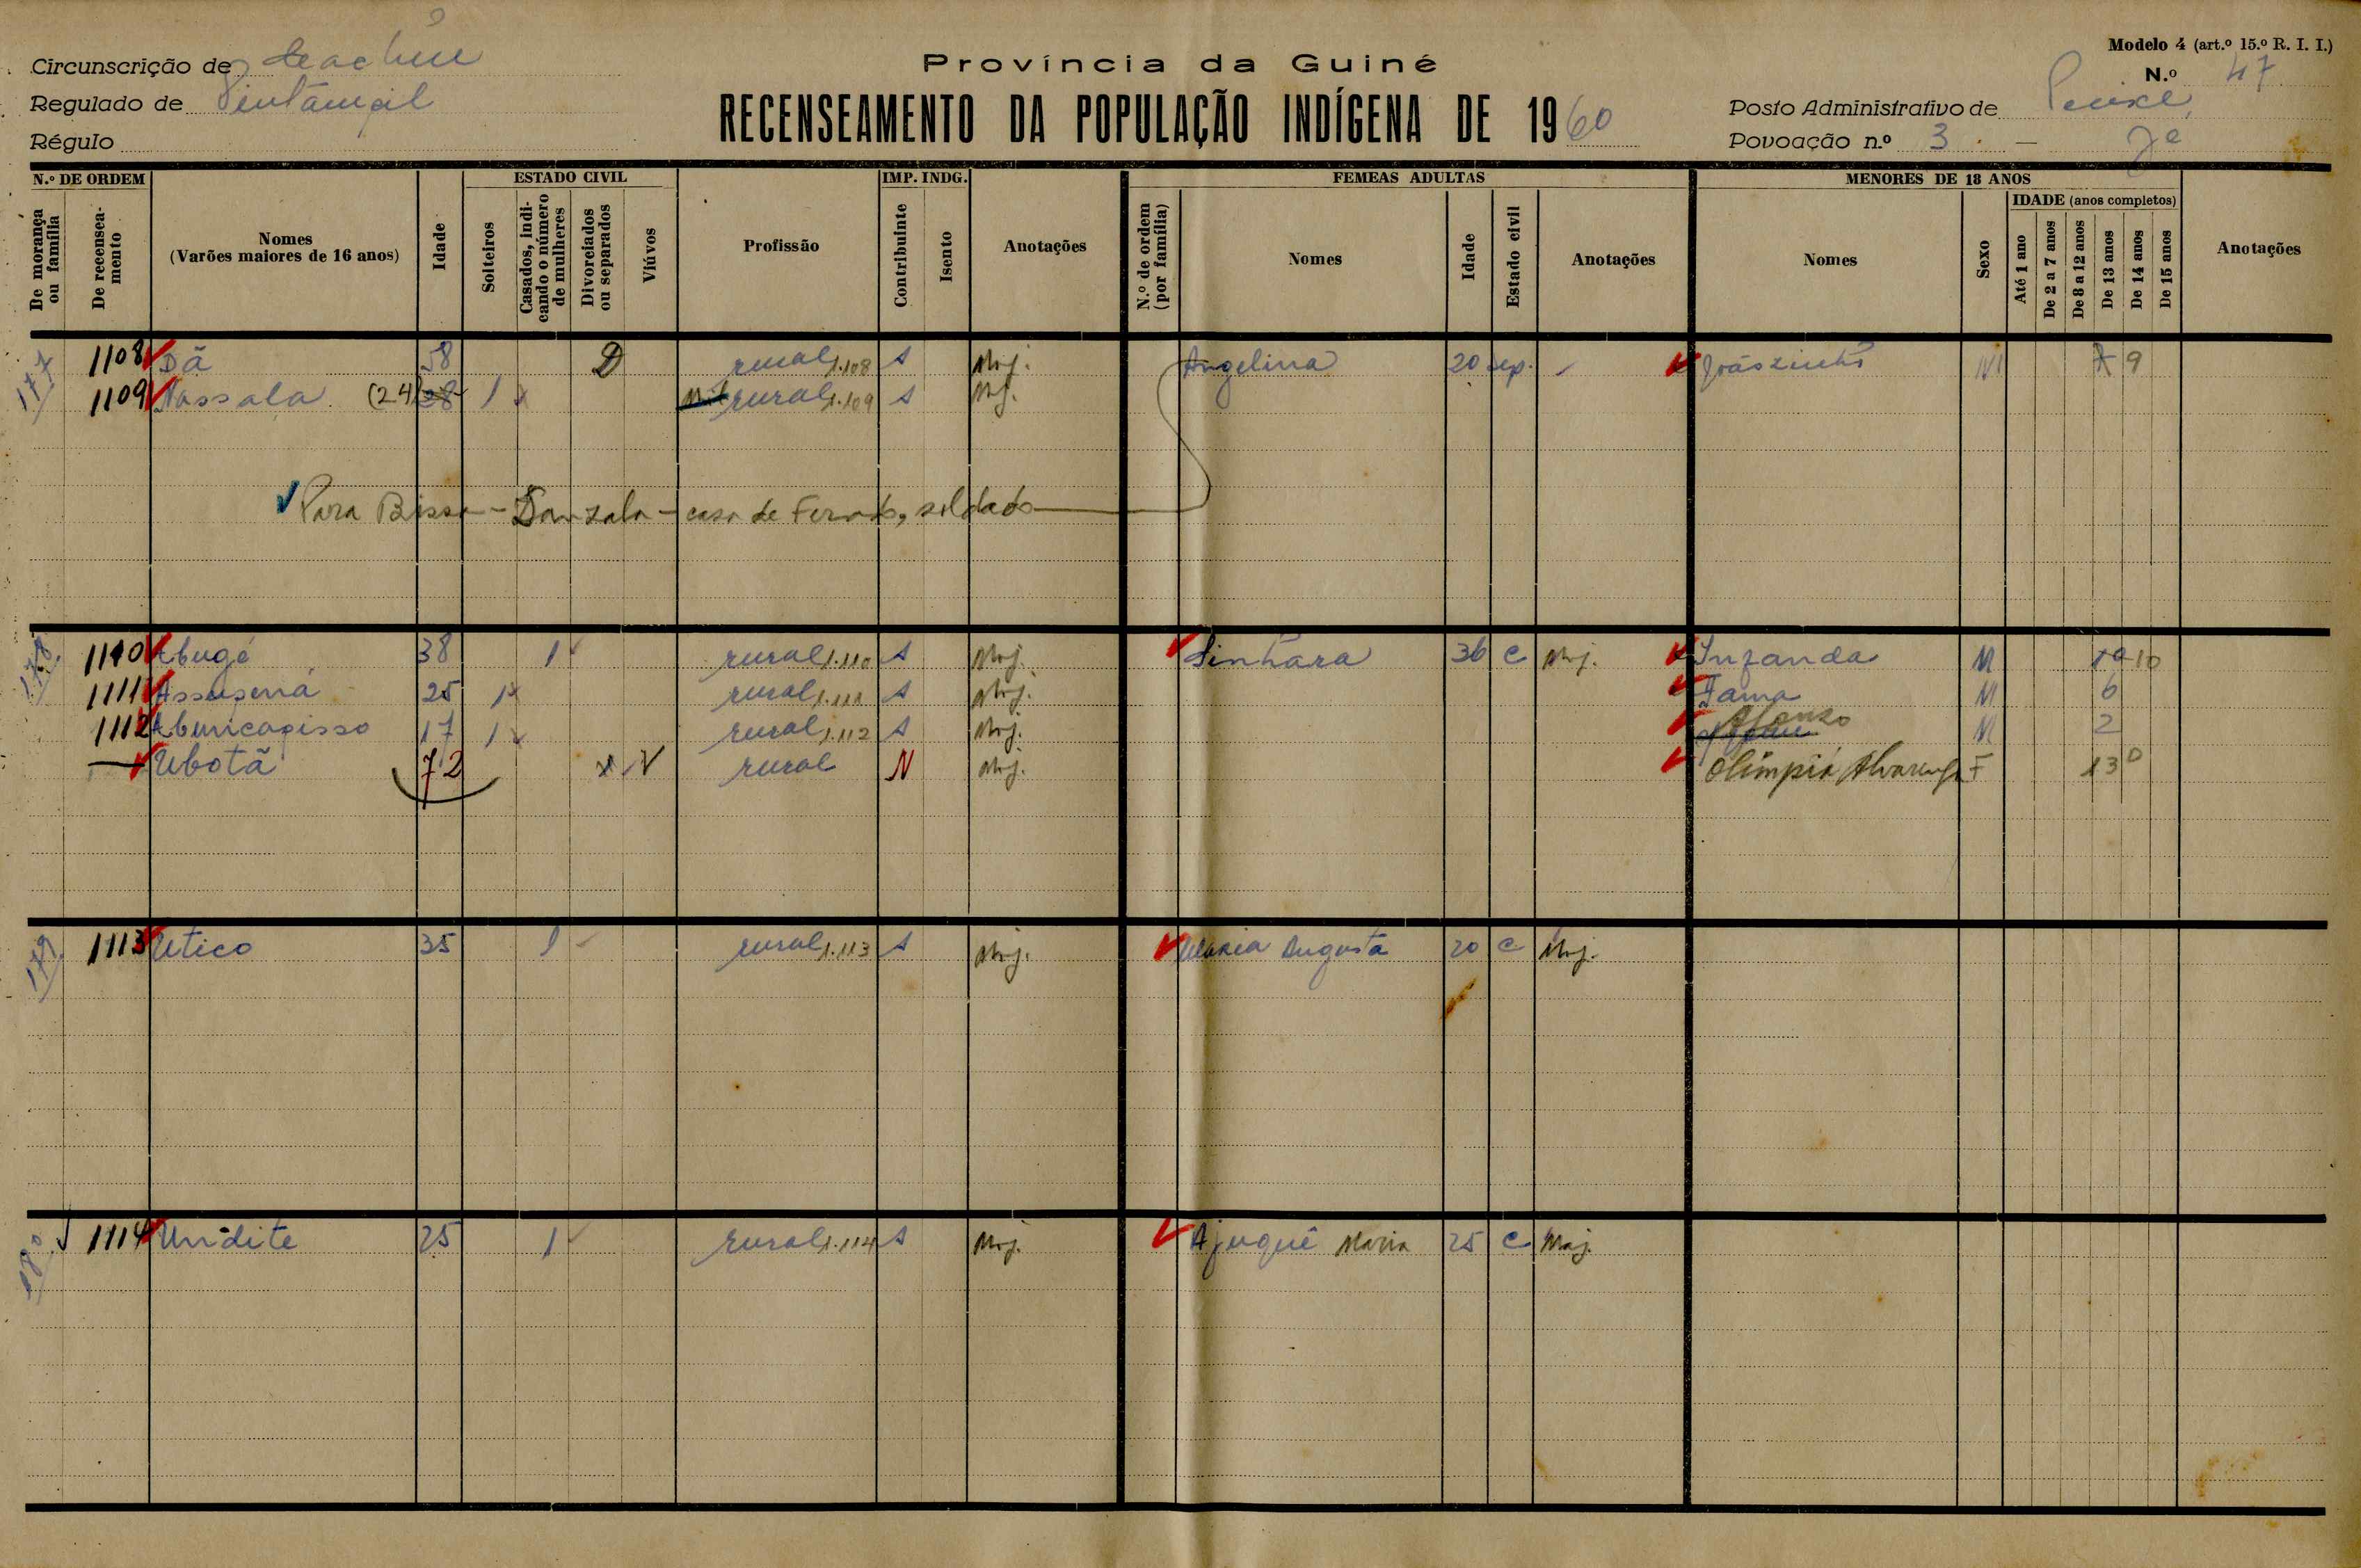 Circunscrição de
Regulado de
Régulo
Província da Guiné
RECENSEAMENTO DA POPULAÇÃO INDÍGENA DE 1960
Modelo 4 (art.º 15.º R. I. I.)
N.º 47
Posto Administrativo de
Povoação n.º 3 —
N.º DE ORDEM
De morança ou família
De recenseamento
Nomes
(Varões maiores de 16 anos)
Idade
ESTADO CIVIL
Solteiros
Casados, indicando o número de mulheres
Divorciados ou separados
Viúvos
Profissão
IMP. INDG.
Contribuinte
Isento
Anotações
FEMEAS ADULTAS
N.º de ordem (por família)
Nomes
Idade
Estado civil
Anotações
MENORES DE 18 ANOS
Nomes
Sexo
IDADE (anos completos)
Até 1 ano
De 2 a 7 anos
De 8 a 12 anos
De 13 anos
De 14 anos
De 15 anos
Anotações
177 1108 Dã 58 D rural 1.108 s Angelina 20 sep. Joãozinho M 7 9
1109 Nassala (24) 28 1 rural 1.109 s
Para Bissa - - casa de soldado
178 1110 Abugé 38 1 rural 1.110 s Sinhara 36 c Inzanda M 10 10
1111 25 1 rural 1.111 s Fama M 6
1112 17 1 rural 1.112 s Afonso M 2
Ubotã 72 V rural N Olímpia Alvarenga F 13
179 1113 Utico 35 1 rural 1.113 s Maria Augusta 20 c
180 1114 Undite 25 1 rural 1.114 s Ajuguê Maria 25 c